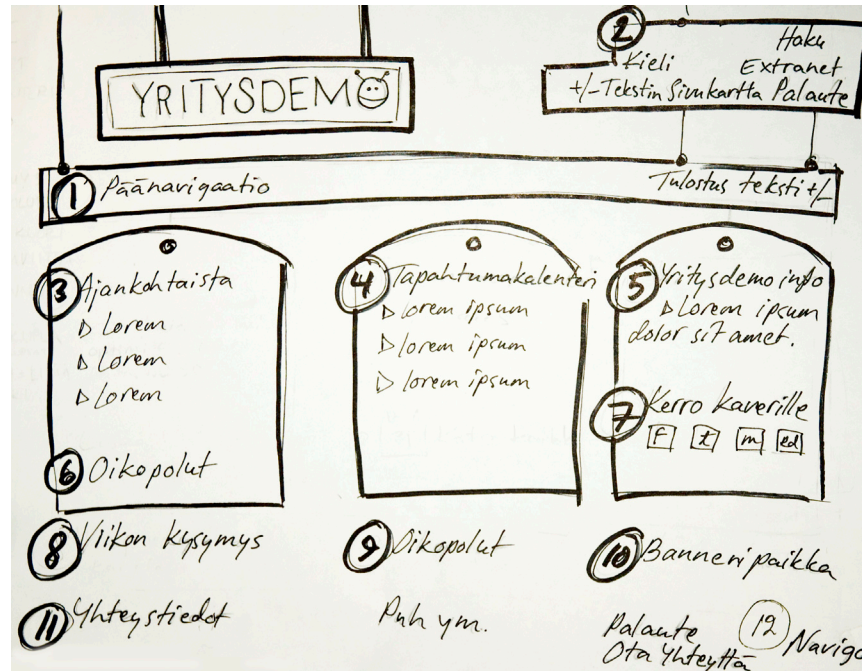 YRITYSDEMO
2
Haku
Kieli Extranet
+/- Tekstin Sivukartta Palaute
1 Päänavigaatio
Tulostus teksti +/-
3 Ajankohtaista
Lorem
Lorem
Lorem
6 Oikopolut
4 Tapahtumakalenteri
lorem ipsum
lorem ipsum
lorem ipsum
5 Yritysdemo info
Lorem ipsum
dolor sit amet.
7 Kerro kaverille
f t m ed
8 Viikon kysymys
9 Oikopolut
10 Banneripaikka
11 Yhteystiedot
Puh ym.
Palaute
Ota Yhteyttä
12 Naviga